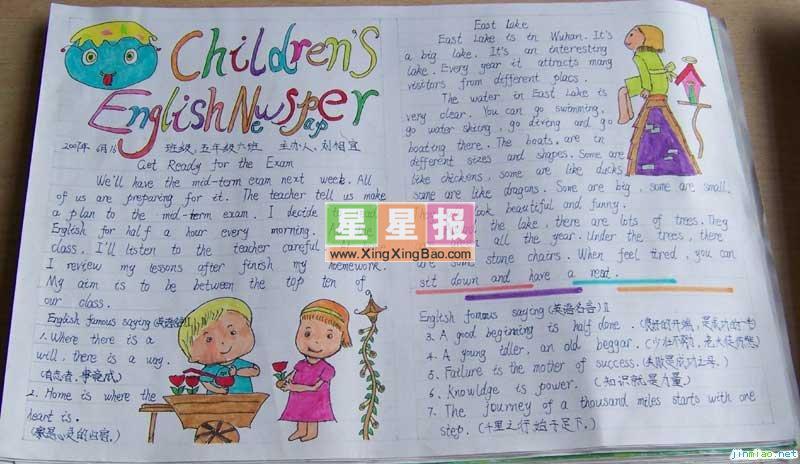 Children's
English Newspaper
2007年 6月15 班级:五年级六班 主办人:刘相宜
Get Ready for the Exam
We'll have the mid-term exam next week. All
of us are preparing for it. The teacher tell us make
a plan to the mid-term exam. I decide
English for half a hour every morning.
class. I'll listen to the teacher careful
I review my lessons after finish my homework.
My aim is to be between the top ten of
our class.
English famous saying (英语名言)I
1. Where there is a
will, there is a way.
(有志者,事竟成)
2. Home is where the
heart is.
East Lake
East Lake is in Wuhan. It's
a big lake. It's an interesting
lake. Every year it attracts many
visitors from different placs.
The water in East Lake is
very clear. You can go swimming,
go water skiing, go diving and go
boating there. The boats are in
different sizes and shapes. Some are
like chickens, some are like ducks
some are like dragons. Some are big, some are small.
look beautiful and funny.
the lake, there are lots of trees. They
all the year. Under the trees, there
are some stone chairs. When feel tired, you can
sit down and have a rest.
English famous saying (英语名言)II
3. A good beginning is half done.
4. A young idler, an old beggar.
5. Failure is the mother of success. (失败是成功之母。)
6. Knowldge is power. (知识就是力量)
7. The journey of a thousand miles starts with one
step. (千里之行始于足下。)
星星报
www.XingXingBao.com
jinmiao.net